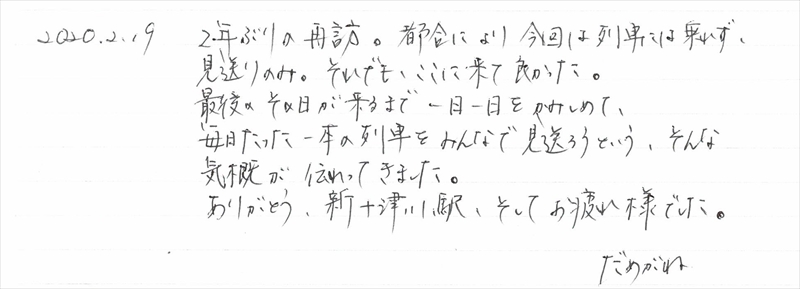 2020.2.19 2年ぶりの再訪。都合により今回は列車には乗れず、
見送りのみ。それでも、ここに来て良かった。
最後のその日が来るまで一日一日をかみしめて、
毎日たった一本の列車をみんなで見送ろうという、そんな
気概が伝わってきました。
ありがとう、新十津川駅、そしてお疲れ様でした。
だめがね